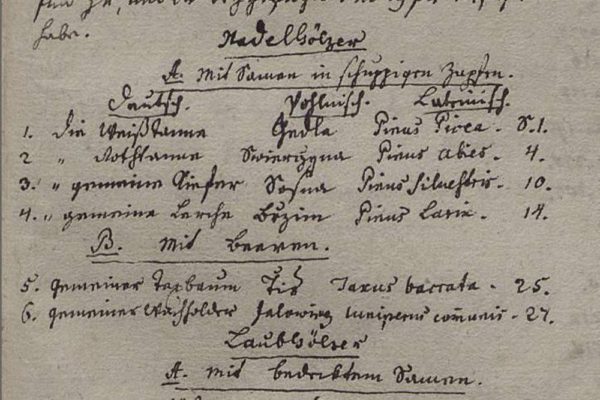 habe.
Nadelhölzer
A. Mit Samen in schuppigen Zapfen.
Deutsch. Pohlnisch. Lateinisch.
1. Die Weißtanne Jedla Pinus Picea. S. 1.
2 " Rothtanne Swierzyna Pinus abies. 4.
3. " gemeine Kiefer Sosna Pinus silvestris. 10.
4. " gemeine Lerche Brzim Pinus Larix. 14.
B. Mit Beeren.
5. gemeiner Taxbaum Tis Taxus baccata. 25.
6. gemeiner Wachholder Jalowiez Iuniperus com̅unis. 27.
Laubhölzer
A. Mit bedecktem Samen.